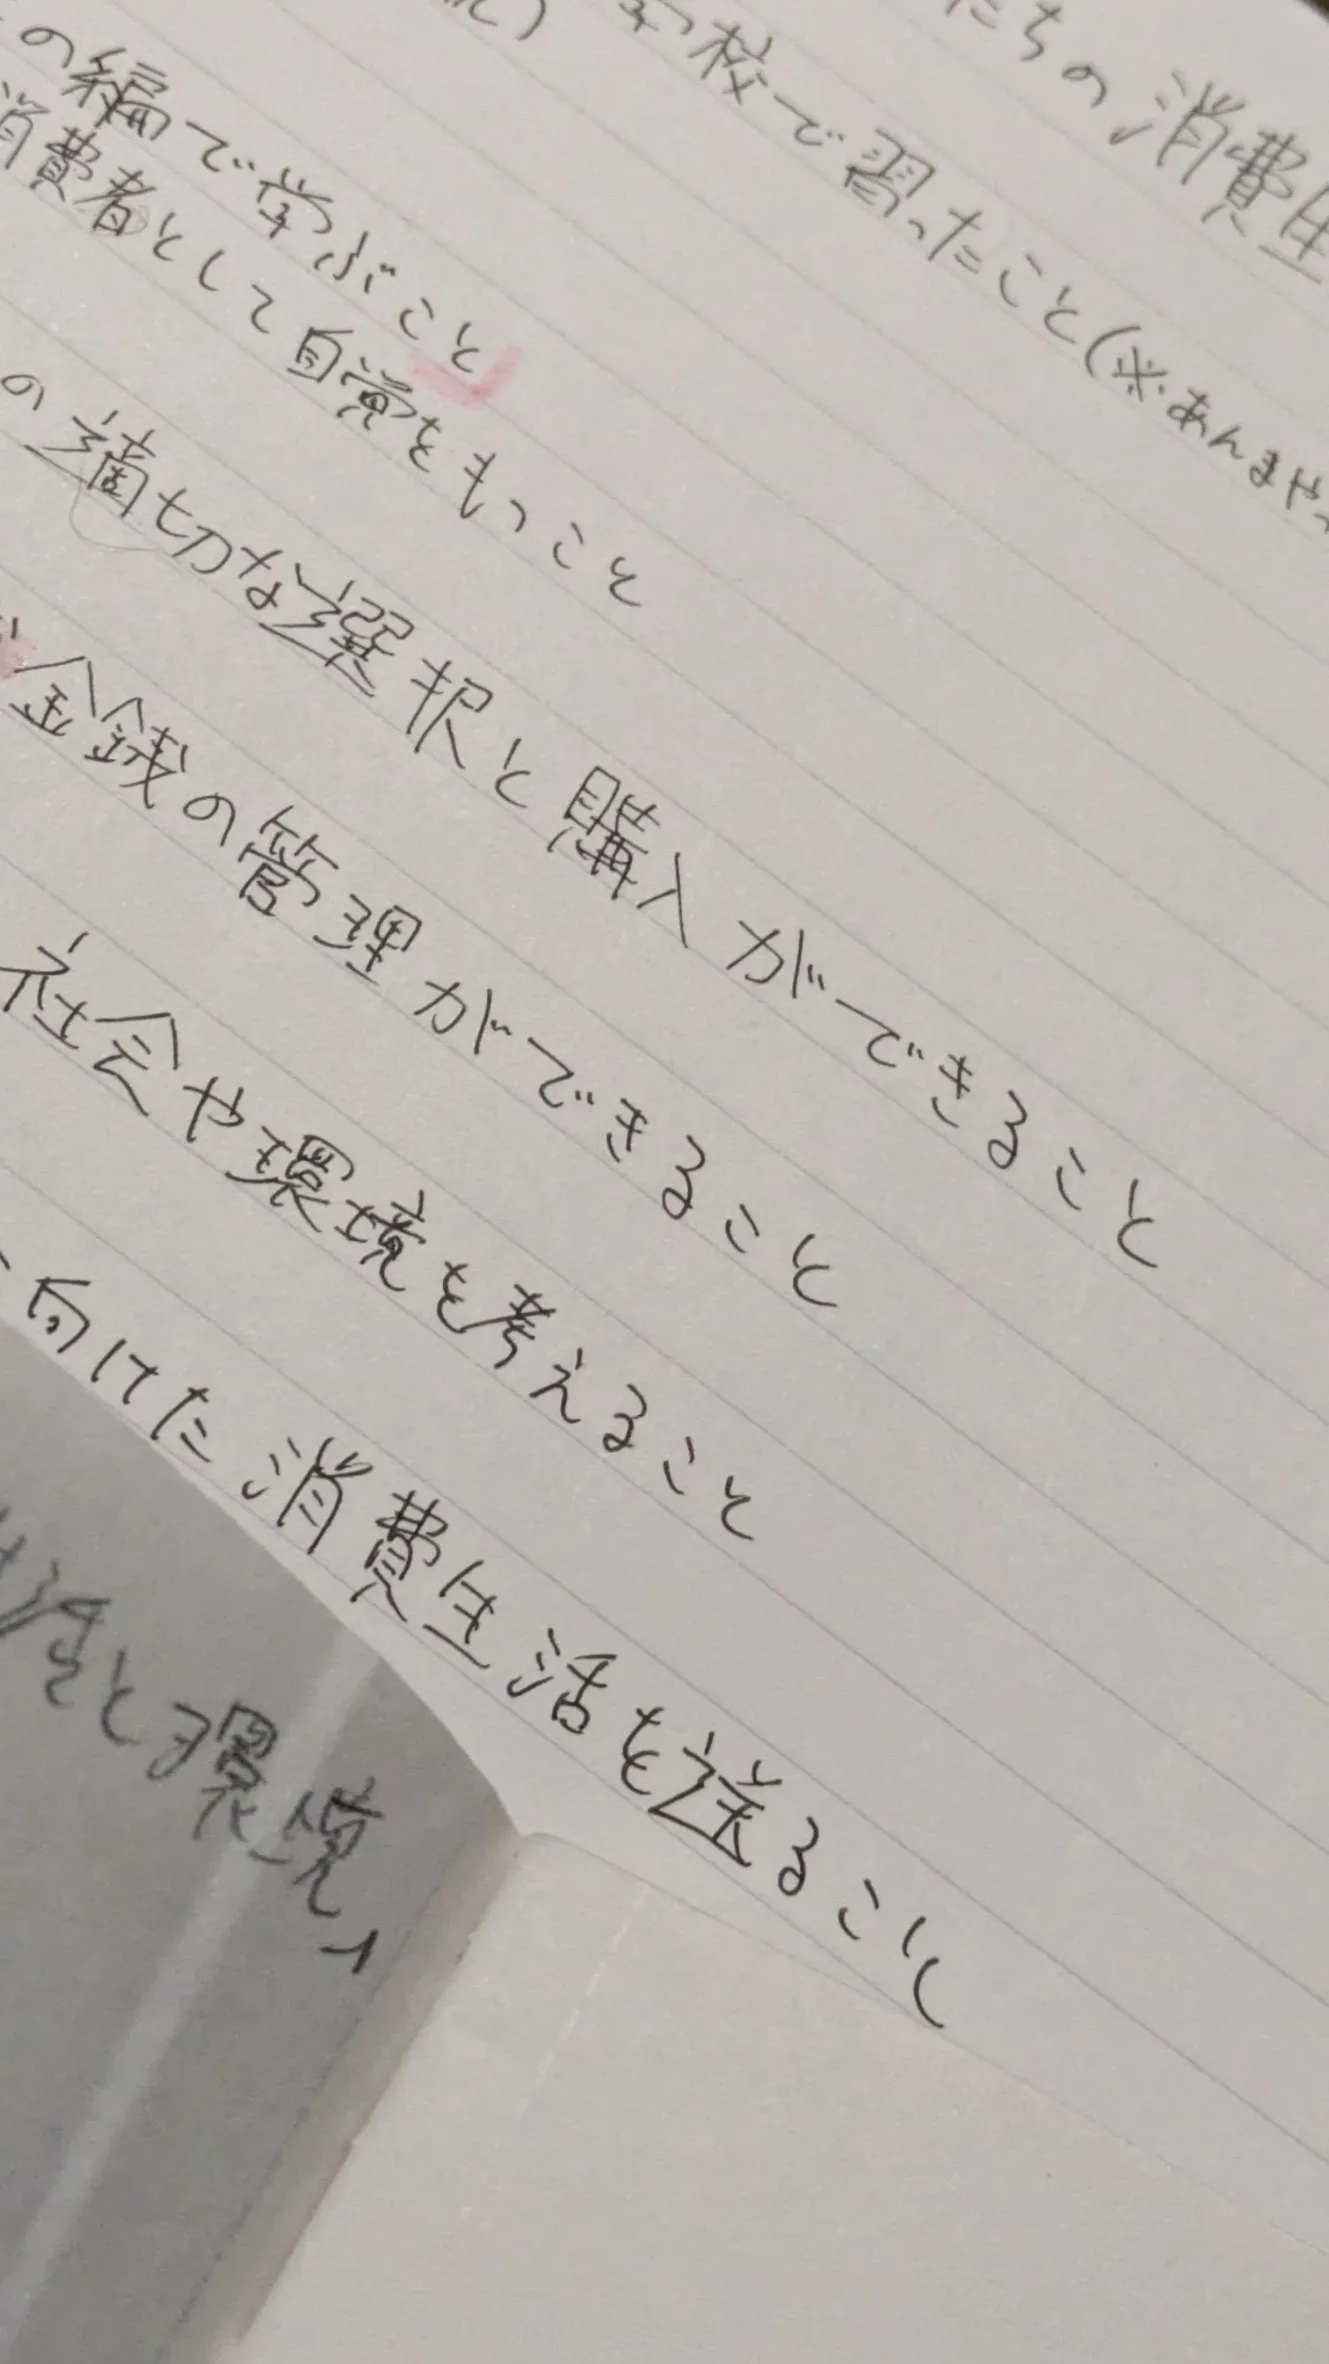 たちの消費生
学校で習ったこと(※あんまや
の編で学ぶこと
消費者として自覚をもつこと
の適切な選択と購入ができること
金銭の管理ができること
社会や環境を考えること
向けた消費生活を送ること
生活と環境